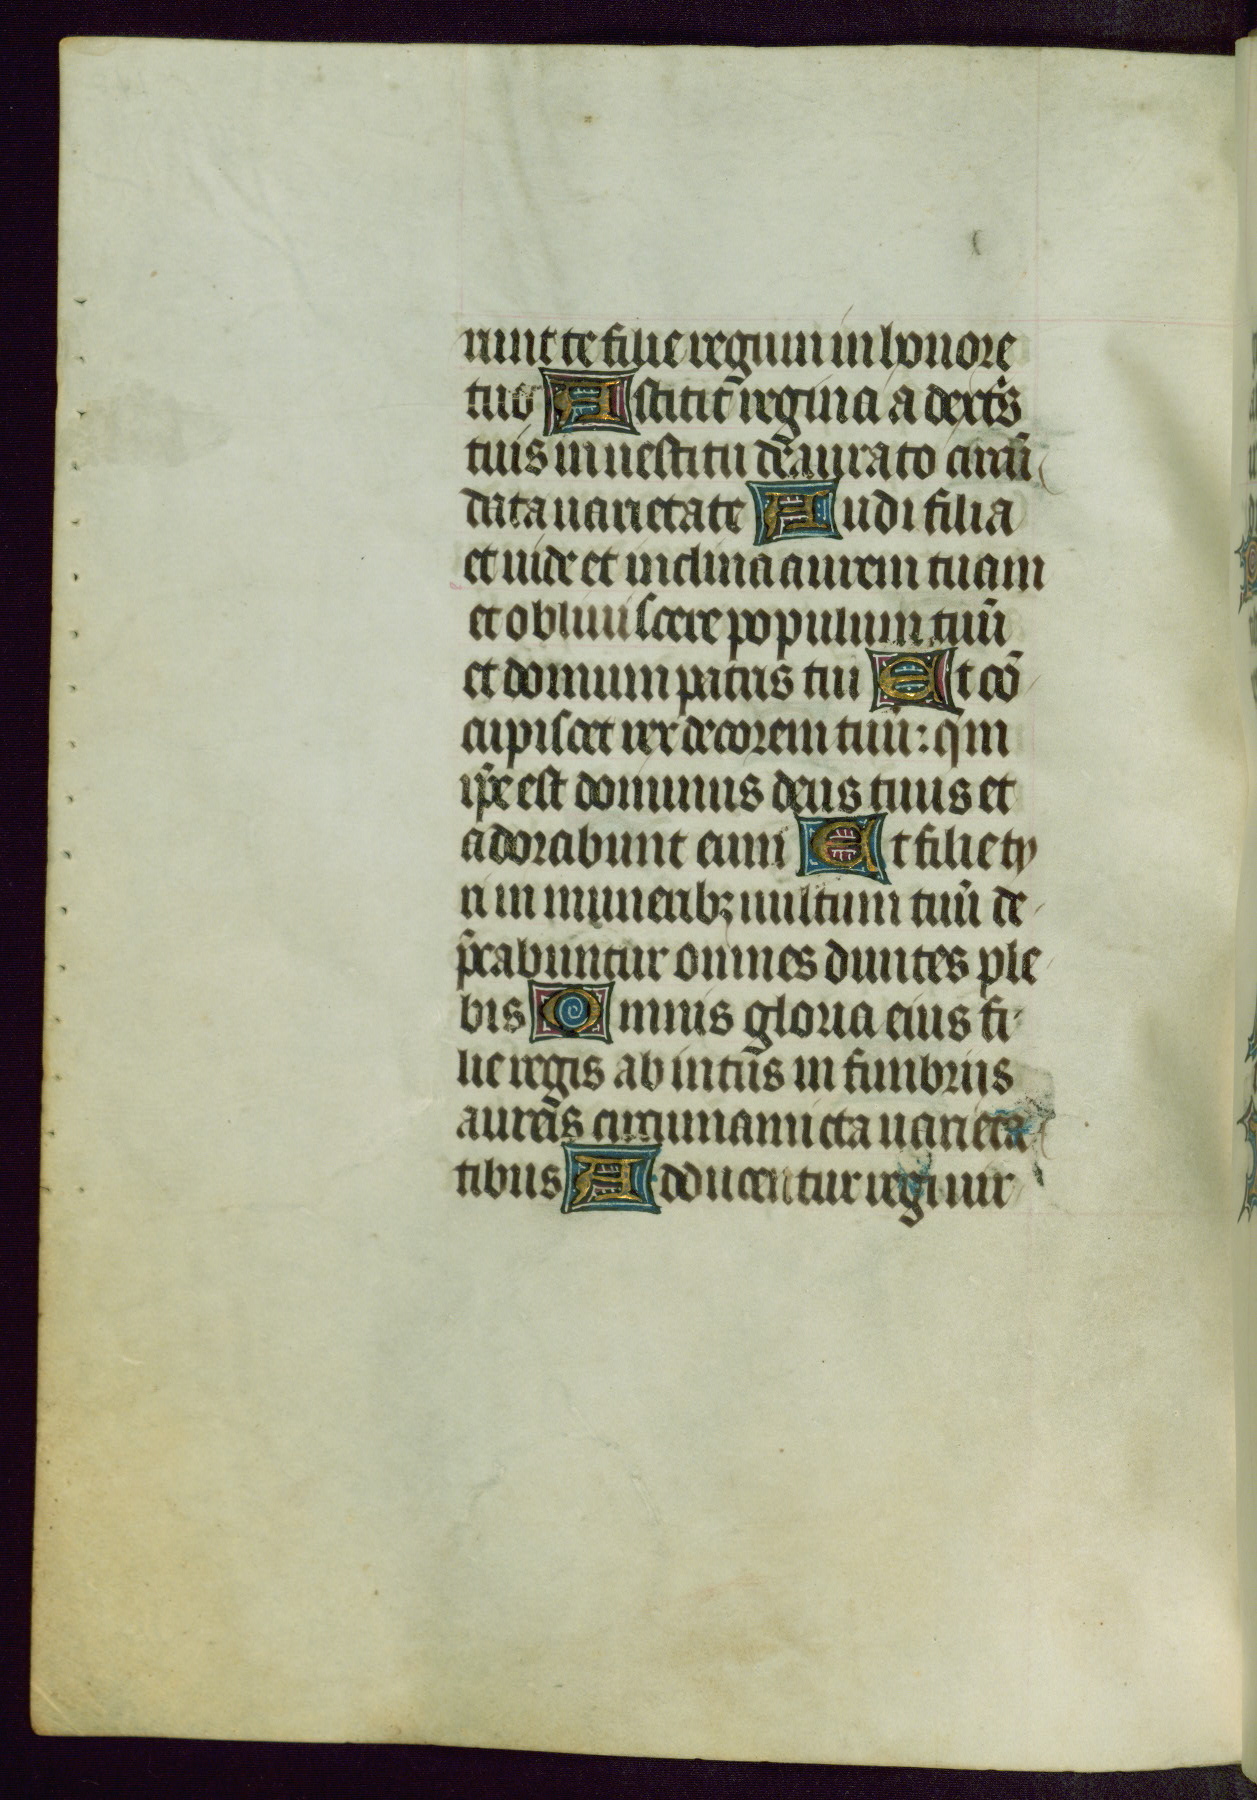 runt te filie regum in honore
tuo Astitit regina a dextr̄s
tuis in uestitu deaurato circū
data uarietate Audi filia
et uide et inclina aurem tuam
et obliuiscere populum tuū
et domum patris tui Et cō
cupiscet rex decorem tuū: qm̄
ip̄e est dominus deus tuus et
adorabunt eum Et filie ty
ri in munerib; uultum tuū de
p̄cabuntur omnes diuites ple
bis Omnis gloria eius fi
lie regis ab intūs in fimbriis
aureīs circumamicta uarieta
tibus Adducentur regi uir